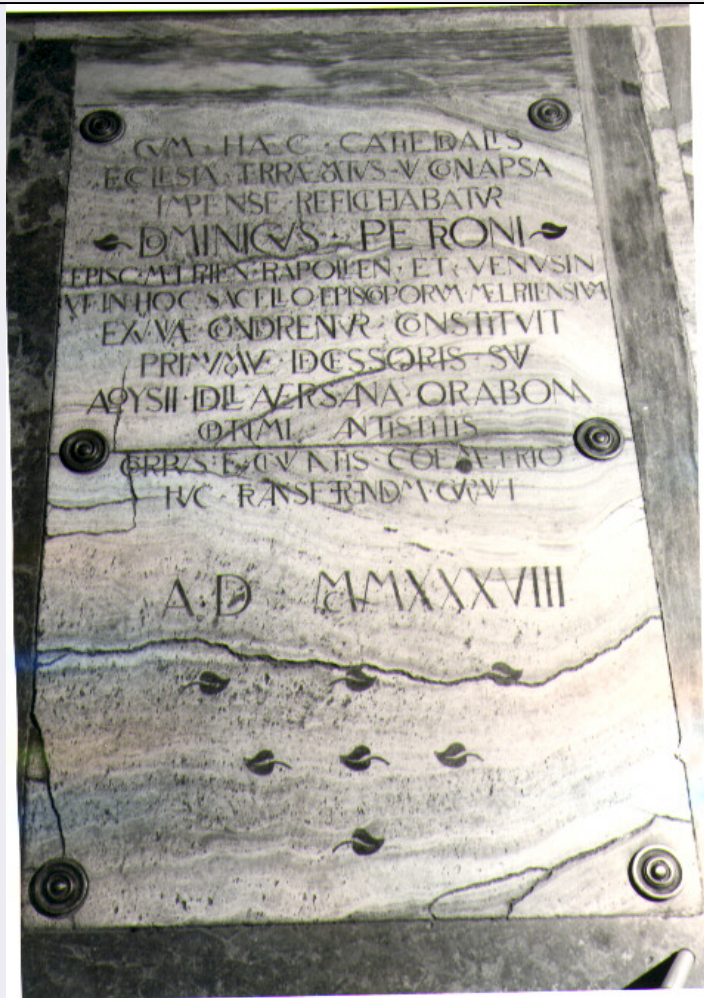 CVM · HÆC · CATHEDRALIS
ECCLESIA · TERRÆMOTVS · VI CONLAPSA
IMPENSE · REFICIEBATVR
DOMINICVS · PETRONI
EPISC · MELFIEN · RAPOLLEN · ET · VENVSIN
VT · IN HOC · SACELLO · EPISCOPORVM · MELFIENSIVM
EXVVIÆ · CONDERENTVR · CONSTITVIT
DECESSORIS · SVI
ALOYSII · DELL AVERSANA · ORABONA
OPTIMI · ANTISTITIS
CORPVS · E · CIVITATIS · COEMETERIO
HVC · TRANSFERENDVM · CVRAVIT
A · D